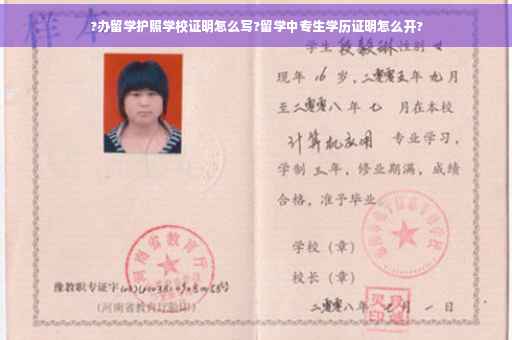 ?办留学护照学校证明怎么写?留学中专生学历证明怎么开?
样本
学生 段毅琳 性别 女
现年 16 岁，二零零五年 九月
至二零零八年 七 月在本校
计算机应用 专业学习，
学制 三年，修业期满，成绩
合格，准予毕业
学校（章）
校长（章）
二零零八年 月 一 日
河南省教育厅
豫教职专证字
（河南省教育厅验印）